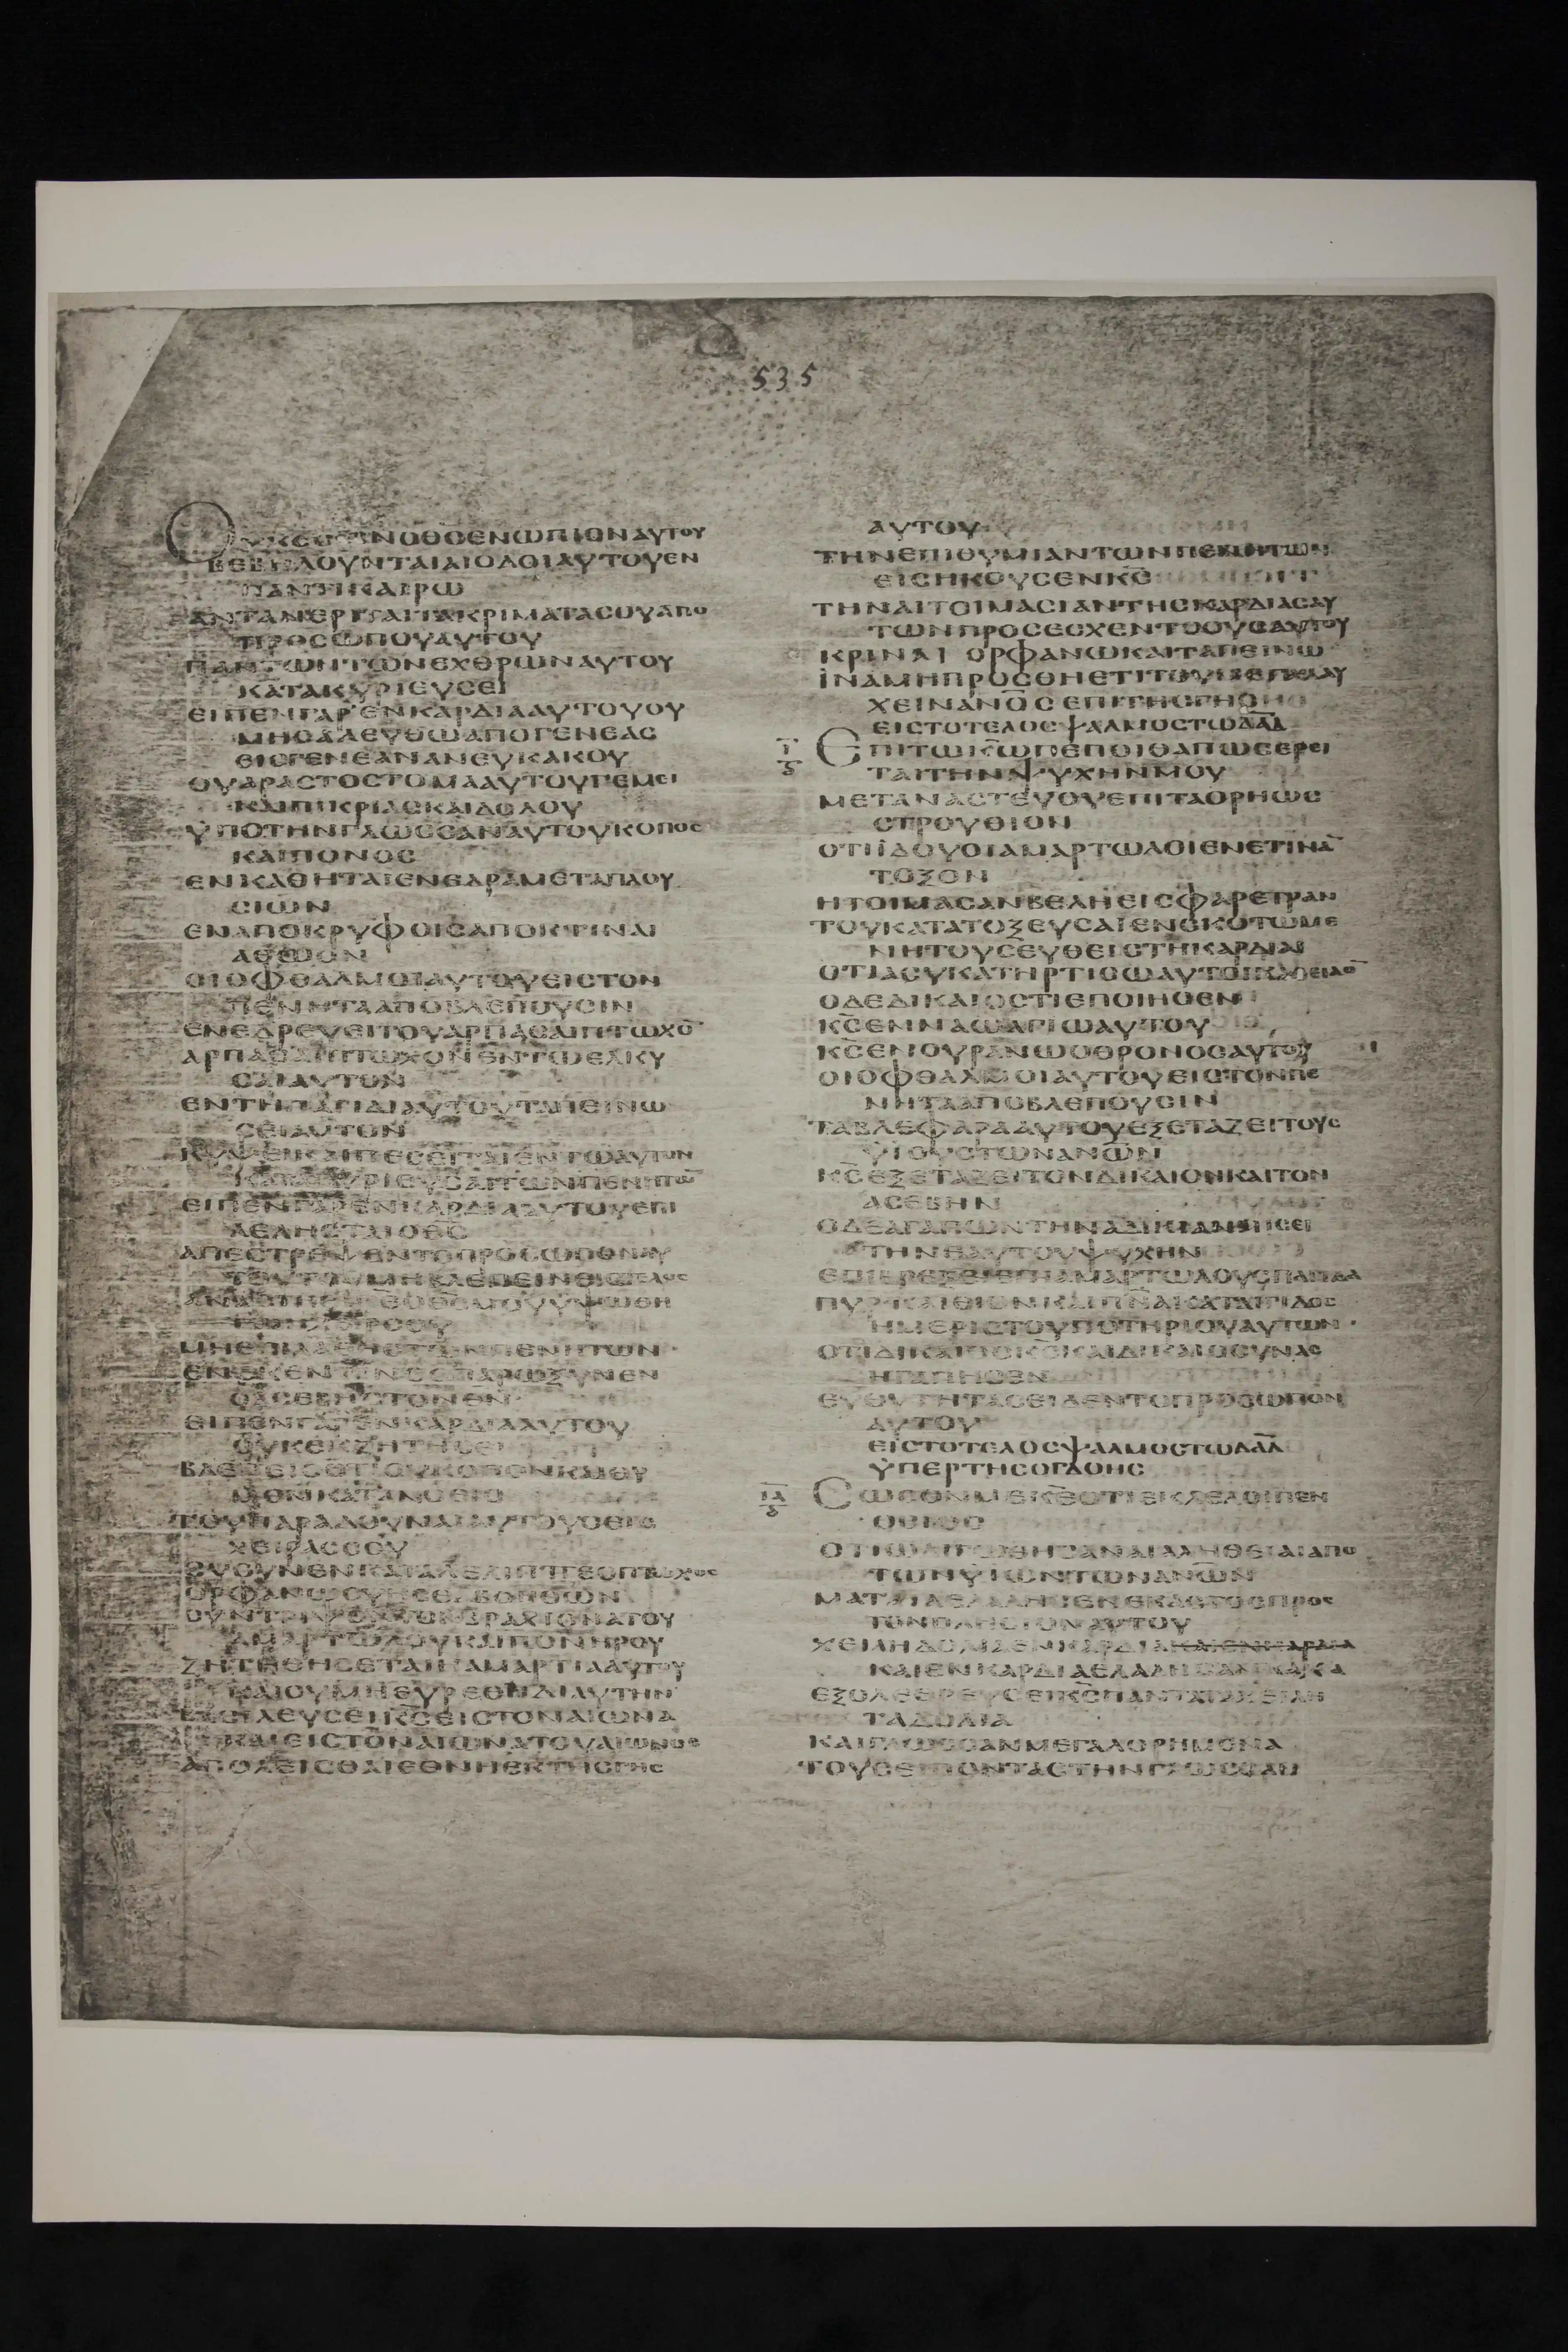 535
ΟΥΚ ΕΣΤΙΝ Ο ΘΣ ΕΝΩΠΙΟΝ ΑΥΤΟΥ
ΒΕΒΗΛΟΥΝΤΑΙ ΑΙ ΟΔΟΙ ΑΥΤΟΥ ΕΝ
ΠΑΝΤΙ ΚΑΙΡΩ
ΑΝΤΑΝΕΡΙΤΑΙ ΤΑ ΚΡΙΜΑΤΑ ΣΟΥ ΑΠΟ
ΠΡΟΣΩΠΟΥ ΑΥΤΟΥ
ΠΑΝΤΩΝ ΤΩΝ ΕΧΘΡΩΝ ΑΥΤΟΥ
ΚΑΤΑΚΥΡΙΕΥΣΕΙ
ΕΙΠΕΝ ΓΑΡ ΕΝ ΚΑΡΔΙΑ ΑΥΤΟΥ ΟΥ
ΜΗ ΣΑΛΕΥΘΩ ΑΠΟ ΓΕΝΕΑΣ
ΕΙΣ ΓΕΝΕΑΝ ΑΝΕΥ ΚΑΚΟΥ
ΟΥ ΑΡΑΣ ΤΟ ΣΤΟΜΑ ΑΥΤΟΥ ΓΕΜΕΙ
ΚΑΙ ΠΙΚΡΙΑΣ ΚΑΙ ΔΟΛΟΥ
ΫΠΟ ΤΗΝ ΓΛΩΣΣΑΝ ΑΥΤΟΥ ΚΟΠΟΣ
ΚΑΙ ΠΟΝΟΣ
ΕΝΚΑΘΗΤΑΙ ΕΝΕΔΡΑ ΜΕΤΑ ΠΛΟΥ
ΣΙΩΝ
ΕΝ ΑΠΟΚΡΥΦΟΙΣ ΑΠΟΚΤΙΝΑΙ
ΑΘΩΟΝ
ΟΙ ΟΦΘΑΛΜΟΙ ΑΥΤΟΥ ΕΙΣ ΤΟΝ
ΠΕΝΗΤΑ ΑΠΟΒΛΕΠΟΥΣΙΝ
ΕΝΕΔΡΕΥΕΙ ΤΟΥ ΑΡΠΑΣΑΙ ΠΤΩΧΟ̅
ΑΡΠΑΣΑΙ ΠΤΩΧΟΝ ΕΝ ΤΩ ΕΛΚΥ
ΣΑΙ ΑΥΤΟΝ
ΕΝ ΤΗ ΠΑΓΙΔΙ ΑΥΤΟΥ ΤΑΠΕΙΝΩ
ΣΕΙ ΑΥΤΟΝ
ΚΥΨΕΙ ΚΑΙ ΠΕΣΕΙΤΑΙ ΕΝ ΤΩ ΑΥΤΟΝ
ΚΑΤΑΚΥΡΙΕΥΣΑΙ ΤΩΝ ΠΕΝΗΤΩ̅
ΕΙΠΕΝ ΓΑΡ ΕΝ ΚΑΡΔΙΑ ΑΥΤΟΥ ΕΠΙ
ΛΕΛΗΣΤΑΙ Ο ΘΣ
ΑΠΕΣΤΡΕΨΕΝ ΤΟ ΠΡΟΣΩΠΟΝ ΑΥ
ΤΟΥ ΤΟΥ ΜΗ ΒΛΕΠΕΙΝ ΕΙΣ ΤΕΛΟΣ
ΜΗ ΕΠΙΛΑΘΗ ΤΩΝ ΠΕΝΗΤΩΝ
ΕΝΕΚΕΝ ΤΙΝΟΣ ΠΑΡΩΞΥΝΕΝ
Ο ΑΣΕΒΗΣ ΤΟΝ ΘΝ
ΕΙΠΕΝ ΓΑΡ ΕΝ ΚΑΡΔΙΑ ΑΥΤΟΥ
ΟΥΚ ΕΚΖΗΤΗΣΕΙ
ΒΛΕΠΕΙΣ ΟΤΙ ΣΥ ΚΟΠΟΝ ΚΑΙ ΘΥ
ΜΟΝ ΚΑΤΑΝΟΕΙΣ
ΤΟΥ ΠΑΡΑΔΟΥΝΑΙ ΑΥΤΟΥΣ ΕΙΣ
ΧΕΙΡΑΣ ΣΟΥ
ΣΥ ΟΡΦΑΝΩ ΣΥ ΗΣΘΑ ΒΟΗΘΩΝ
ΣΥΝΤΡΙΨΟΝ ΤΟΝ ΒΡΑΧΙΟΝΑ ΤΟΥ
ΑΜΑΡΤΩΛΟΥ ΚΑΙ ΠΟΝΗΡΟΥ
ΖΗΤΗΘΗΣΕΤΑΙ Η ΑΜΑΡΤΙΑ ΑΥΤΟΥ
ΚΑΙ ΟΥ ΜΗ ΕΥΡΕΘΗ ΔΙ ΑΥΤΗΝ
ΒΑΣΙΛΕΥΣΕΙ ΚΣ ΕΙΣ ΤΟΝ ΑΙΩΝΑ
ΚΑΙ ΕΙΣ ΤΟΝ ΑΙΩΝΑ ΤΟΥ ΑΙΩΝΟΣ
ΑΠΟΛΕΙΣΘΑΙ ΕΘΝΗ ΕΚ ΤΗΣ ΓΗΣ
ΑΥΤΟΥ
ΤΗΝ ΕΠΙΘΥΜΙΑΝ ΤΩΝ ΠΕΝΗΤΩΝ
ΕΙΣΗΚΟΥΣΕΝ ΚΣ
ΤΗΝ ΑΙΤΟΙΜΑΣΙΑΝ ΤΗΣ ΚΑΡΔΙΑΣ ΑΥ
ΤΩΝ ΠΡΟΣΕΣΧΕΝ ΤΟ ΟΥΣ ΑΥΤΟΥ
ΚΡΙΝΑΙ ΟΡΦΑΝΩ ΚΑΙ ΤΑΠΕΙΝΩ
ΙΝΑ ΜΗ ΠΡΟΣΘΗ ΕΤΙ ΤΟΥ ΜΕΓΑΛΑΥ
ΧΕΙΝ ΑΝΟΣ ΕΠΙ ΤΗΣ ΓΗΣ
ΕΙΣ ΤΟ ΤΕΛΟΣ ΨΑΛΜΟΣ ΤΩ ΔΑΔ
Ι ΕΠΙ ΤΩ ΚΩ ΠΕΠΟΙΘΑ ΠΩΣ ΕΡΕΙ
ΤΑΙ ΤΗΝ ΨΥΧΗΝ ΜΟΥ
ΜΕΤΑΝΑΣΤΕΥΟΥ ΕΠΙ ΤΑ ΟΡΗ ΩΣ
ΣΤΡΟΥΘΙΟΝ
ΟΤΙ ΙΔΟΥ ΟΙ ΑΜΑΡΤΩΛΟΙ ΕΝΕΤΙΝΑ̅
ΤΟΞΟΝ
ΗΤΟΙΜΑΣΑΝ ΒΕΛΗ ΕΙΣ ΦΑΡΕΤΡΑΝ
ΤΟΥ ΚΑΤΑΤΟΞΕΥΣΑΙ ΕΝ ΣΚΟΤΩΜΕ
ΝΗ ΤΟΥΣ ΕΥΘΕΙΣ ΤΗ ΚΑΡΔΙΑ
ΟΤΙ Α ΣΥ ΚΑΤΗΡΤΙΣΩ ΑΥΤΟΙ ΚΑΘΕΙΛΟ̅
Ο ΔΕ ΔΙΚΑΙΟΣ ΤΙ ΕΠΟΙΗΣΕΝ
ΚΣ ΕΝ ΝΑΩ ΑΓΙΩ ΑΥΤΟΥ
ΚΣ ΕΝ ΟΥΡΑΝΩ Ο ΘΡΟΝΟΣ ΑΥΤΟΥ
ΟΙ ΟΦΘΑΛΜΟΙ ΑΥΤΟΥ ΕΙΣ ΤΟΝ ΠΕ
ΝΗΤΑ ΑΠΟΒΛΕΠΟΥΣΙΝ
ΤΑ ΒΛΕΦΑΡΑ ΑΥΤΟΥ ΕΞΕΤΑΖΕΙ ΤΟΥΣ
ΥΙΟΥΣ ΤΩΝ ΑΝΩΝ
ΚΣ ΕΞΕΤΑΖΕΙ ΤΟΝ ΔΙΚΑΙΟΝ ΚΑΙ ΤΟΝ
ΑΣΕΒΗΝ
Ο ΔΕ ΑΓΑΠΩΝ ΤΗΝ ΑΔΙΚΙΑΝ ΜΙΣΕΙ
ΤΗΝ ΕΑΥΤΟΥ ΨΥΧΗΝ
ΕΠΙΒΡΕΞΕΙ ΕΠΙ ΑΜΑΡΤΩΛΟΥΣ ΠΑΓΙΔΑ
ΠΥΡ ΚΑΙ ΘΙΟΝ ΚΑΙ ΠΝΑ ΚΑΤΑΙΓΙΔΟΣ
Η ΜΕΡΙΣ ΤΟΥ ΠΟΤΗΡΙΟΥ ΑΥΤΩΝ
ΟΤΙ ΔΙΚΑΙΟΣ ΚΣ ΚΑΙ ΔΙΚΑΙΟΣΥΝΑΣ
ΗΓΑΠΗΣΕΝ
ΕΥΘΥΤΗΤΑΣ ΕΙΔΕΝ ΤΟ ΠΡΟΣΩΠΟΝ
ΑΥΤΟΥ
ΕΙΣ ΤΟ ΤΕΛΟΣ ΨΑΛΜΟΣ ΤΩ ΔΑΔ
ΫΠΕΡ ΤΗΣ ΟΓΔΟΗΣ
ΙΑ ΣΩΣΟΝ ΜΕ ΚΕ ΟΤΙ ΕΚΛΕΛΟΙΠΕΝ
ΟΣΙΟΣ
ΟΤΙ ΩΛΙΓΩΘΗΣΑΝ ΑΙ ΑΛΗΘΕΙΑΙ ΑΠΟ
ΤΩΝ ΥΙΩΝ ΤΩΝ ΑΝΩΝ
ΜΑΤΑΙΑ ΕΛΑΛΗΣΕΝ ΕΚΑΣΤΟΣ ΠΡΟΣ
ΤΟΝ ΠΛΗΣΙΟΝ ΑΥΤΟΥ
ΧΕΙΛΗ ΔΟΛΙΑ ΕΝ ΚΑΡΔΙΑ ΚΑΙ ΕΝ ΚΑΡΔΙΑ
ΚΑΙ ΕΝ ΚΑΡΔΙΑ ΕΛΑΛΗΣΑΝ ΚΑΚΑ
ΕΞΟΛΕΘΡΕΥΣΕΙ ΚΣ ΠΑΝΤΑ ΤΑ ΧΕΙΛΗ
ΤΑ ΔΟΛΙΑ
ΚΑΙ ΓΛΩΣΣΑΝ ΜΕΓΑΛΟΡΗΜΟΝΑ
ΤΟΥΣ ΕΙΠΟΝΤΑΣ ΤΗΝ ΓΛΩΣΣΑΝ